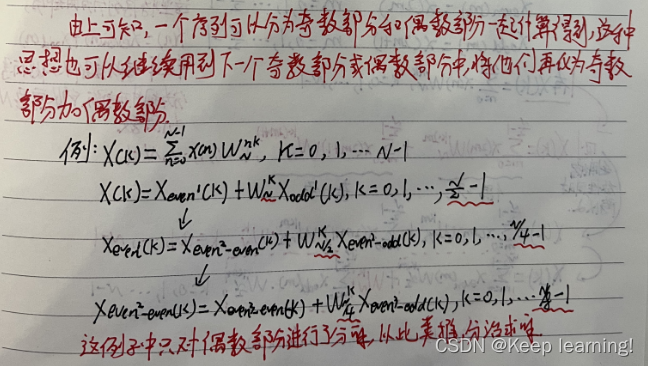 由上可知,一个序列可以分为奇数部分和偶数部分一起计算得到,这种
思想也可以继续用到下一个奇数部分或偶数部分中,将他们再以为奇数
部分加偶数部分.
例: X(k) = Σ_{n=0}^{N-1} x(n) W_N^{nk}, k=0,1,…N-1
X(k) = X_{even^1}(k) + W_N^k X_{odd^1}(k), k=0,1,…,N/2-1
↓
X_{even^1}(k) = X_{even^2-even}(k) + W_{N/2}^k X_{even^2-odd}(k), k=0,1,…,N/4-1
↓
X_{even^2-even}(k) = (k) + W (k), k=0,1,…-1
这例子中只对偶数部分进行了分解,以此类推,分治求解
CSDN @Keep learning!